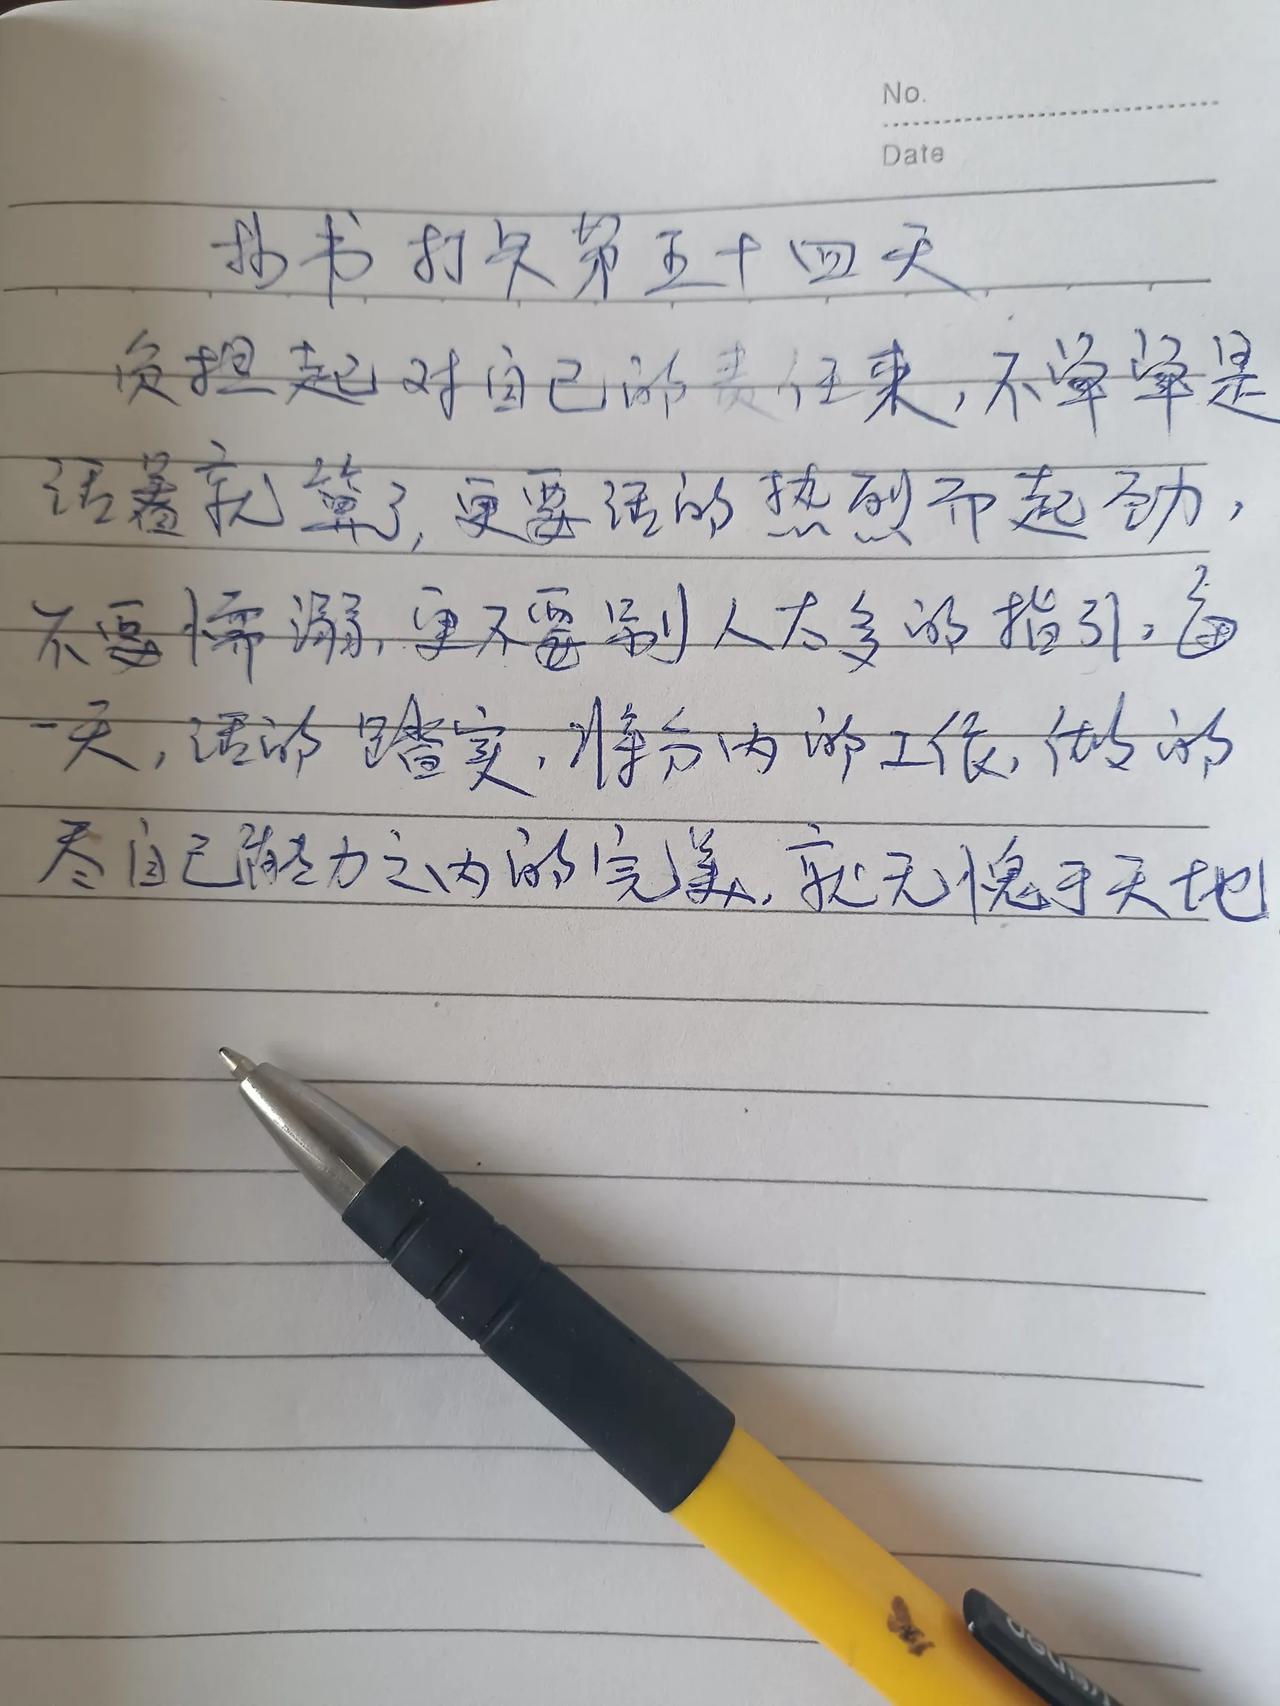 No.
Date
抄书打卡第五十四天
负担起对自己的责任来,不单单是
活着就算了,更要活的热烈而起劲,
不要懦溺,更不要别人太多的指引。每
一天,活的踏实,将分内的工作,做的
尽自己能力之内的完美,就无愧于天地